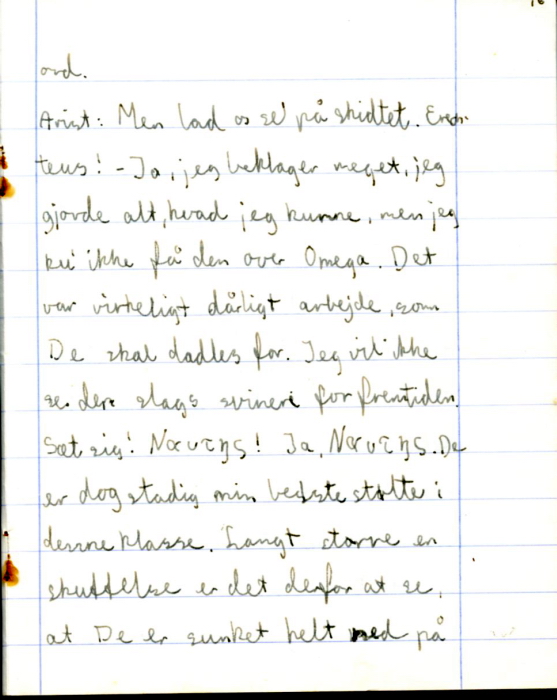 ord.
Arist: Men lad os se' på skidtet. Erech-
teus! - Ja, jeg beklager meget, jeg
gjorde alt, hvad jeg kunne, men jeg
ku' ikke få den over Omega. Det
var virkeligt dårligt arbejde, som
De skal dadles for. Jeg vil ikke
se den slags svineri for fremtiden.
Sæt sig! Nαυτης! Ja, Nαυτης. De
er dog stadig min bedste støtte i
denne klasse. Langt større en
skuffelse er det derfor at se,
at De er sunket helt ned på